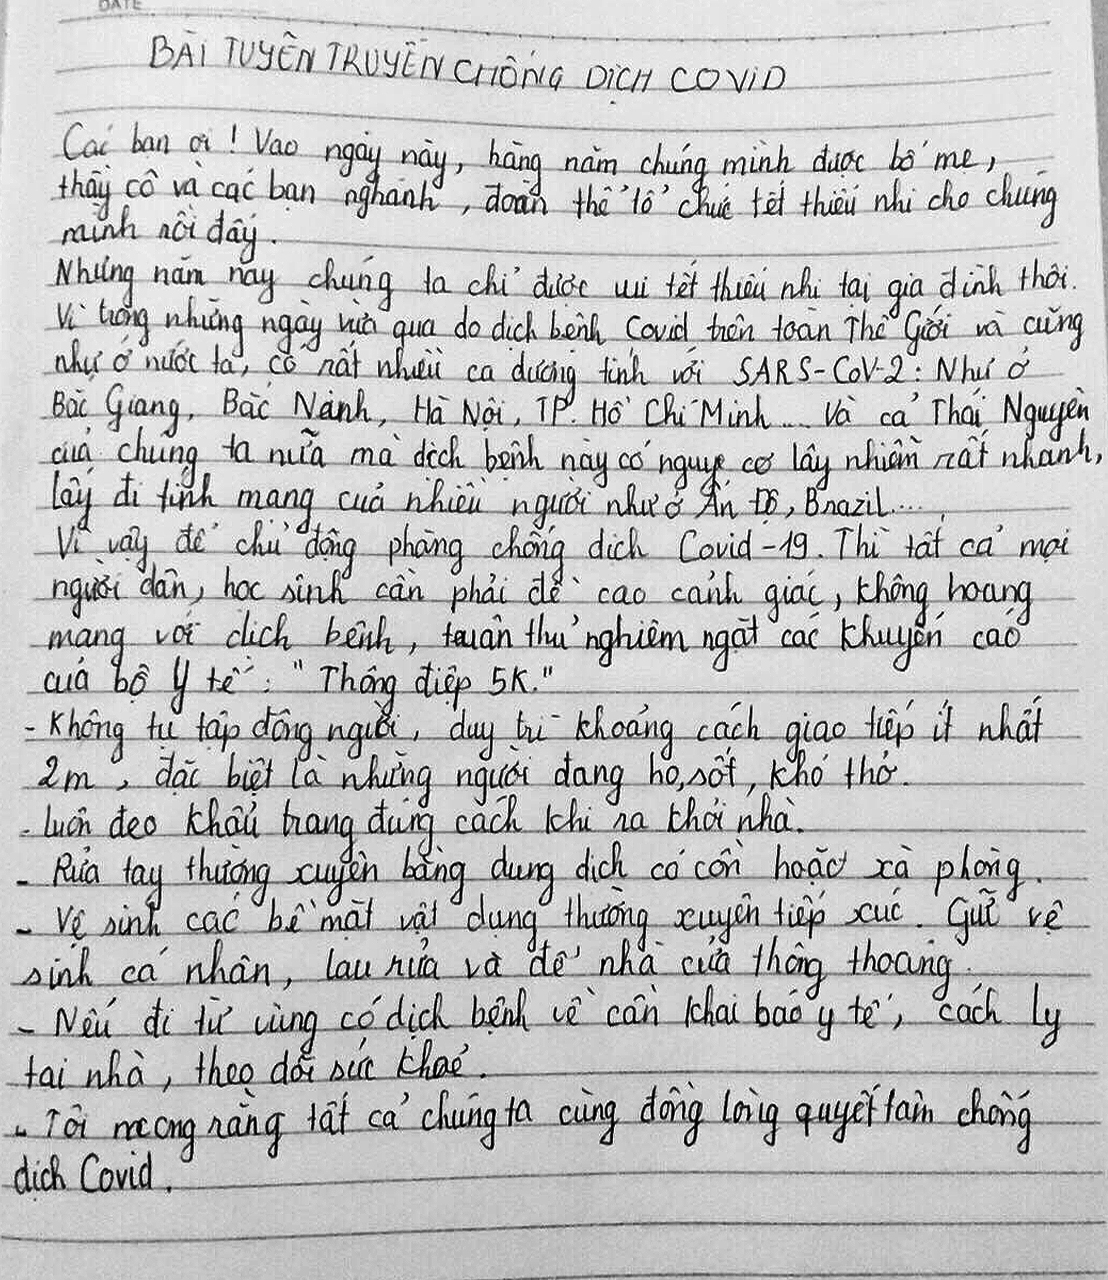 DATE
BÀI TUYÊN TRUYỀN CHỐNG DỊCH COVID
Các bạn ơi! Vào ngày này, hàng năm chúng mình được bố mẹ,
thầy cô và các bạn nghành, đoàn thể tổ chức tết thiếu nhi cho chúng
mình rồi đấy.
Nhưng năm nay chúng ta chỉ được vui tết thiếu nhi tại gia đình thôi.
Vì trong những ngày vừa qua do dịch bệnh Covid trên toàn Thế Giới và cũng
như ở nước ta, có rất nhiều ca dương tính với SARS-CoV-2: Như ở
Bắc Giang, Bắc Ninh, Hà Nội, TP. Hồ Chí Minh... Và cả Thái Nguyên
của chúng ta nữa mà dịch bệnh này có nguye cơ lây nhiễm rất nhanh,
lấy đi tính mạng của nhiều người như ở Ấn Độ, Brazil....,
Vì vậy để chủ động phòng chống dịch Covid-19. Thì tất cả mọi
người dân, học sinh cần phải đề cao cảnh giác, không hoang
mang với dịch bệnh, tuân thủ nghiêm ngặt các khuyến cáo
của bộ Y tế: "Thông điệp 5K."
- Không tụ tập đông người, duy trì khoảng cách giao tiếp ít nhất
2m, đặc biệt là những người đang ho, sốt, khó thở.
- luôn đeo khẩu trang đúng cách khi ra khỏi nhà.
- Rửa tay thường xuyên bằng dung dịch có cồn hoặc xà phòng.
- Vệ sinh các bề mặt vật dụng thường xuyên tiếp xúc. Giữ vệ
sinh cá nhân, lau rửa và để nhà cửa thông thoáng.
- Nếu đi từ vùng có dịch bệnh về cần khai báo y tế, cách ly
tại nhà, theo dõi sức khoẻ.
- Tôi mong rằng tất cả chúng ta cùng đồng lòng quyết tâm chống
dịch Covid.